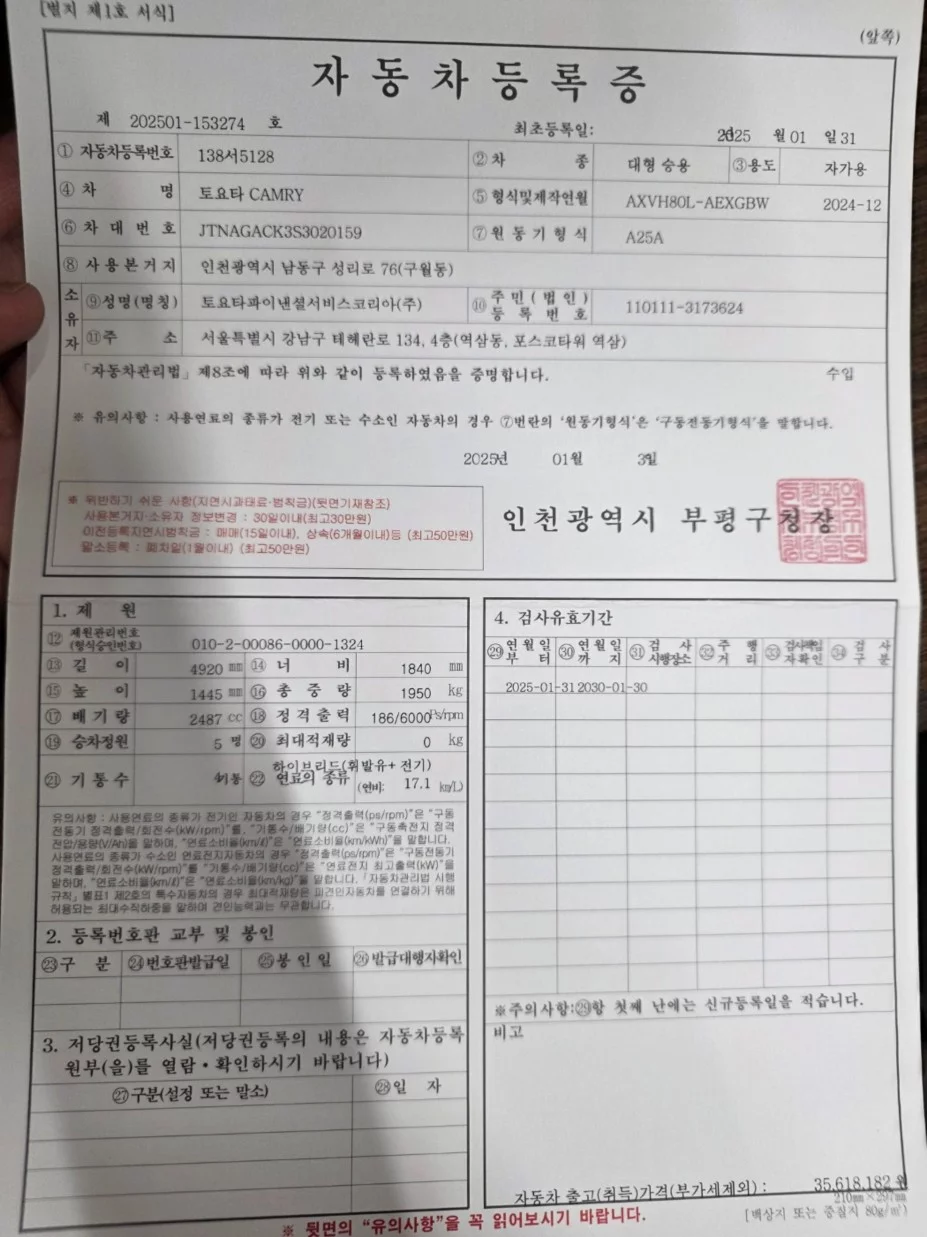 [별지 제1호 서식]
(앞쪽)
자동차등록증
제 202501-153274 호 최초등록일: 2025 년 월 01 일 31
① 자동차등록번호 138서5128 ② 차 종 대형 승용 ③ 용도 자가용
④ 차 명 토요타 CAMRY ⑤ 형식및제작연월 AXVH80L-AEXGBW 2024-12
⑥ 차대번호 JTNAGACK3S3020159 ⑦ 원동기형식 A25A
⑧ 사용본거지 인천광역시 남동구 성리로 76(구월동)
소유자 ⑨ 성명(명칭) 토요타파이낸셜서비스코리아(주) ⑩ 주민(법인)등록번호 110111-3173624
⑪ 주 소 서울특별시 강남구 테헤란로 134, 4층(역삼동, 포스코타워 역삼)
「자동차관리법」 제8조에 따라 위와 같이 등록하였음을 증명합니다. 수입
※ 유의사항 : 사용연료의 종류가 전기 또는 수소인 자동차의 경우 ⑦번란의 '원동기형식'은 '구동전동기형식'을 말합니다.
2025년 01월 31일
※ 위반하기 쉬운 사항(지연시과태료·범칙금)(뒷면기재참조)
사용본거지·소유자 정보변경 : 30일이내(최고30만원)
이전등록지연시범칙금 : 매매(15일이내), 상속(6개월이내)등 (최고50만원)
말소등록 : 폐차말(1월이내) (최고50만원)
인천광역시 부평구청장
1. 제 원
⑫ 제원관리번호 (형식승인번호) 010-2-00086-0000-1324
⑬ 길 이 4920 mm ⑭ 너 비 1840 mm
⑮ 높 이 1445 mm ⑯ 총 중 량 1950 kg
⑰ 배 기 량 2487 cc ⑱ 정격출력 186/6000 Ps/rpm
⑲ 승차정원 5 명 ⑳ 최대적재량 0 kg
㉑ 기 통 수 4기통 ㉒ 연료의 종류 하이브리드(휘발유+ 전기) (연비: 17.1 km/L)
유의사항 : 사용연료의 종류가 전기인 자동차의 경우 "정격출력(ps/rpm)"은 "구동
전동기 정격출력/회전수(kW/rpm)"를, "기통수/배기량(cc)"은 "구동축전지 정격
전압/용량(V/Ah)을 말하며, "연료소비율(km/ℓ)"은 "연료소비율(km/kWh)"을 말합니다.
사용연료의 종류가 수소인 연료전지자동차의 경우 "정격출력(ps/rpm)"은 "구동전동기
정격출력/회전수(kW/rpm)"를 "기통수/배기량(cc)"은 "연료전지 최고출력(kW)"을
말하며, "연료소비율(km/ℓ)"은 "연료소비율(km/kg)"을 말합니다. 「자동차관리법 시행
규칙」 별표1 제2호의 특수자동차의 경우 최대적재량은 피견인자동차를 연결하기 위해
허용되는 최대수직하중을 말하며 견인능력과는 무관합니다.
2. 등록번호판 교부 및 봉인
㉓ 구 분 ㉔ 번호판발급일 ㉕ 봉인일 ㉖ 발급대행자확인
3. 저당권등록사실(저당권등록의 내용은 자동차등록
원부(을)를 열람·확인하시기 바랍니다)
㉗ 구분(설정 또는 말소) ㉘ 일 자
4. 검사유효기간
㉙ 연월일부터 ㉚ 연월일까지 ㉛ 검사시행장소 ㉜ 주행거리 ㉝ 검사책임자확인 ㉞ 검사구분
2025-01-31 2030-01-30
※주의사항:㉙항 첫째 난에는 신규등록일을 적습니다.
비고
자동차 출고(취득)가격(부가세제외) : 35,618,182 원
210㎜×297㎜
[백상지 또는 중질지 80g/㎡)
※ 뒷면의 "유의사항"을 꼭 읽어보시기 바랍니다.